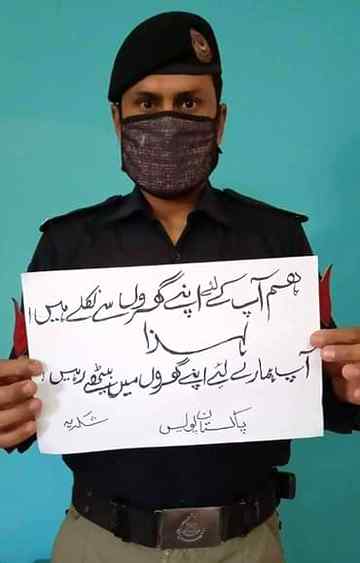 ہم آپ کے لئے اپنے گھروں سے نکلے ہیں!
لہذا
آپ ہمارے لئے اپنے گھروں میں بیٹھے رہیں!
پاکستان پولیس شکریہ